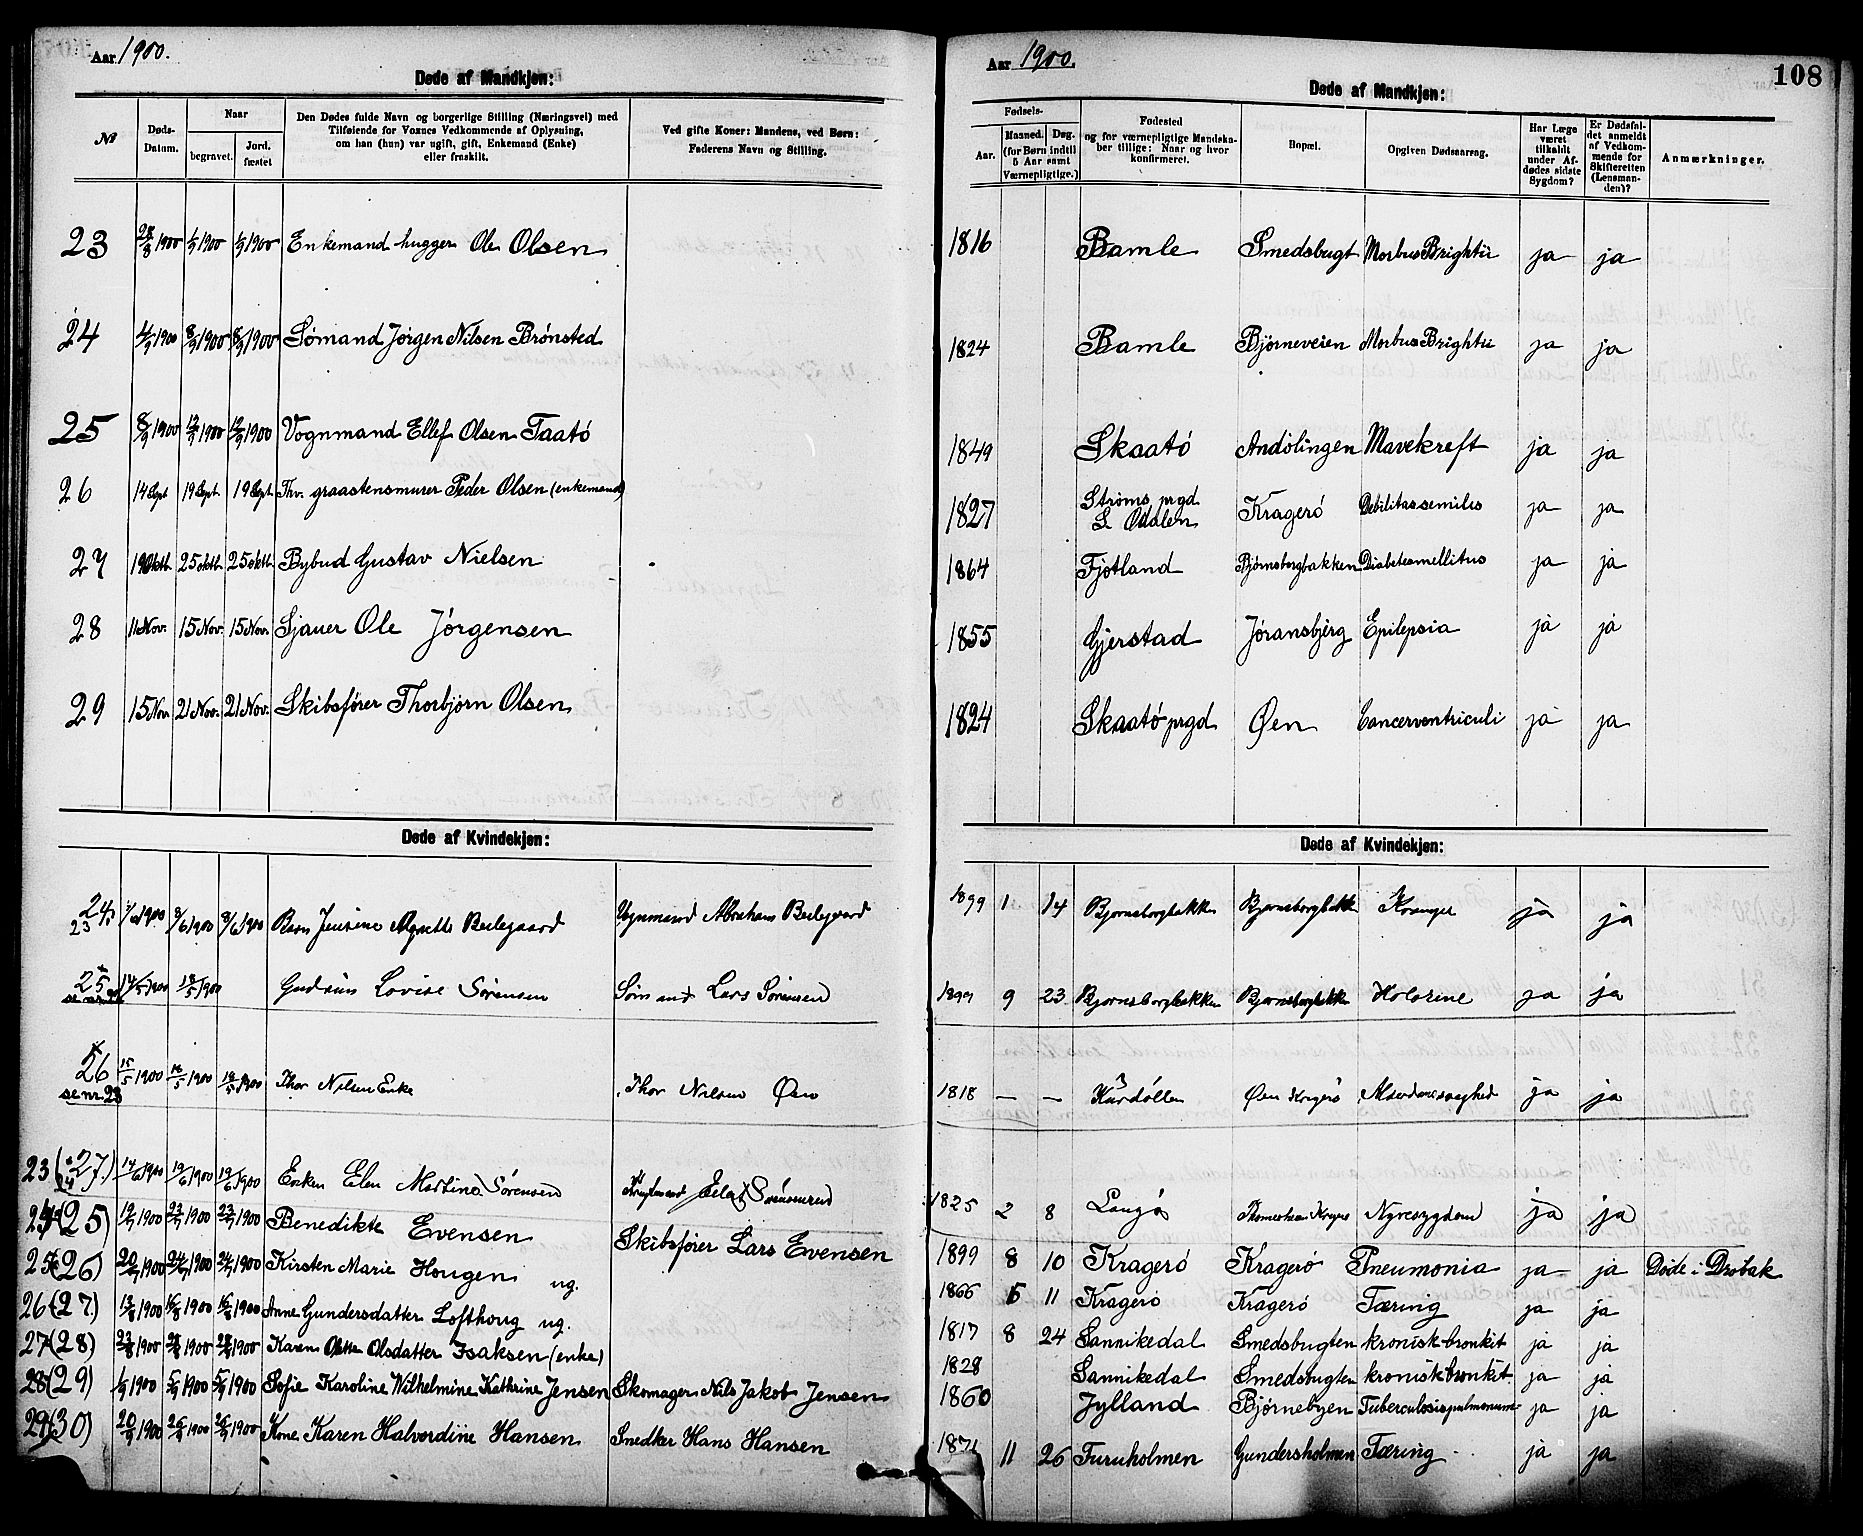 Aar 1900.
Døde af Mandkjøn:
№ | Døds-Datum. | Naar begravet. | Jord. fæstet | Den Dødes fulde Navn og borgerlige Stilling (Næringsvei) med Tilføiende for Voxnes Vedkommende af Oplysning, om han (hun) var ugift, gift, Enkemand (Enke) eller fraskilt. | Ved gifte Koner: Mandens, ved Børn: Faderens Navn og Stilling.
23 | 28/8 1900 | 1/9 1900 | 1/9 1900 | Enkemand hugger Ole Olsen
24 | 4/9 1900 | 8/9 1900 | 8/9 1900 | Sømand Jørgen Nilsen Brønsted
25 | 8/9 1900 | 12/9 1900 | 12/9 1900 | Vognmand Ellef Olsen Taatö
26 | 14 Sept | 19 Sept. | 19 Sept. | Thv. graastensmurer Peder Olsen (enkemand)
27 | 25 oktb. | 25 oktb. | Bybud Gustav Nielsen
28 | 11 Nov. | 15 Nov. | 15 Nov. | Sjauer Ole Jörgensen
29 | 15 Nov. | 21 Nov. | 21 Nov. | Skibsfører Thorbjörn Olsen
Døde af Kvindekjøn:
24 23 | 1900 | 8/6 1900 | 8/6 1900 | Barn Jensine Agnette | Abraham
25 se nr. | 14/5 1900 | 18/5 1900 | Gudrun Lovise Sørensen | Sømand Lars Sørensen
26 se nr. 23 | 15/5 1900 | 1900 | 19/5 1900 | Thor Nilsen Enke | Thor Nilsen Øen
23 (27.) | 14/6 1900 | 19/6 1900 | 19/6 1900 | Enken Elen Martine Sørensen
24 (25) | 19/7 1900 | 23/7 1900 | 23/7 1900 | Benedikte Evensen | Skibsfører Lars Evensen
25 (26) | 20/7 1900 | 24/7 1900 | 24/7 1900 | Kirsten Marie Hougen ug.
26 (27.) | 13/8 1900 | 16/8 1900 | 16/8 1900 | Anne Gundersdatter Lofthoug ug.
27 (28) | 23/8 1900 | 28/8 1900 | 28/8 1900 | Karen Olsdatter Isaksen (enke)
28 (29) | 1/9 1900 | 5/9 1900 | 5/9 1900 | Sofie Karoline Wilhelmine Kathrine Jensen | Skomager Nils Jakob Jensen
29 (30) | 20/9 1900 | 26/9 1900 | 26/9 1900 | Kone Karen Halvordine Hansen | Snedker Hans Hansen
Aar 1900.
108
Døde af Mandkjøn:
Fødsels- Aar. | Maaned. | Døg. (for Børn indtil 5 Aar samt Værnepligtige.) | Fødested og for værnepligtige Mandskaber tillige: Naar og hvor konfirmeret. | Bopæl. | Opgiven Dødsaarsag. | Har Læge været tilkaldt under Afdødes sidste Sygdom? | Er Dødsfaldet anmeldt af Vedkommende for Skifteretten (Lensmanden)? | Anmærkninger.
1816 | Bamle | Smedsbugt | Morbus Brightii | ja | ja
1824 | Bamle | Björneveien | Morbus Brightii | ja | ja
1849 | Skaatö | Andölingen | Mavekreft | ja | ja
1827 | Ströms prgd. S. Odalen | Kragerö | Debilitas senilis | ja | ja
1864 | Fjotland | Björnsborgbakken | Diabetes mellitus | ja | ja
1855 | Gjerstad | Jöransbjerg | Epilepsia | ja | ja
1824 | Skaatö prgd | Øen | Cancer ventriculi | ja | ja
Døde af Kvindekjøn:
1899 | 1 | 14 | Bjornsborgbakke | Bjornsborgbakke | ja | ja
1899 | 9 | 23 | Bjornsborgbakken | Bjornsborgbakken | Holorine | ja | ja
1818 | — | — | Øen Kragerö | ja | ja
1825 | 2 | 8 | Langö | Nyresygdom | ja | ja
1899 | 8 | 10 | Kragerö | Kragerö | Pneumonia | ja | ja | Døde i Drøbak
1866 | 5 | 11 | Kragerö | Kragerö | Tæring | ja | ja
1817 | 8 | 24 | Sannikedal | Smedsbugten | kronisk bronkit | ja | ja
1828 | Sannikedal | Smedsbugten | kronisk bronkit. | ja | ja
1860 | Jylland | Björnebyen | Tuberculosis pulmonum | ja | ja
1871 | 11 | 26 | Furuholmen | Gundersholmen | Tæring | ja | ja